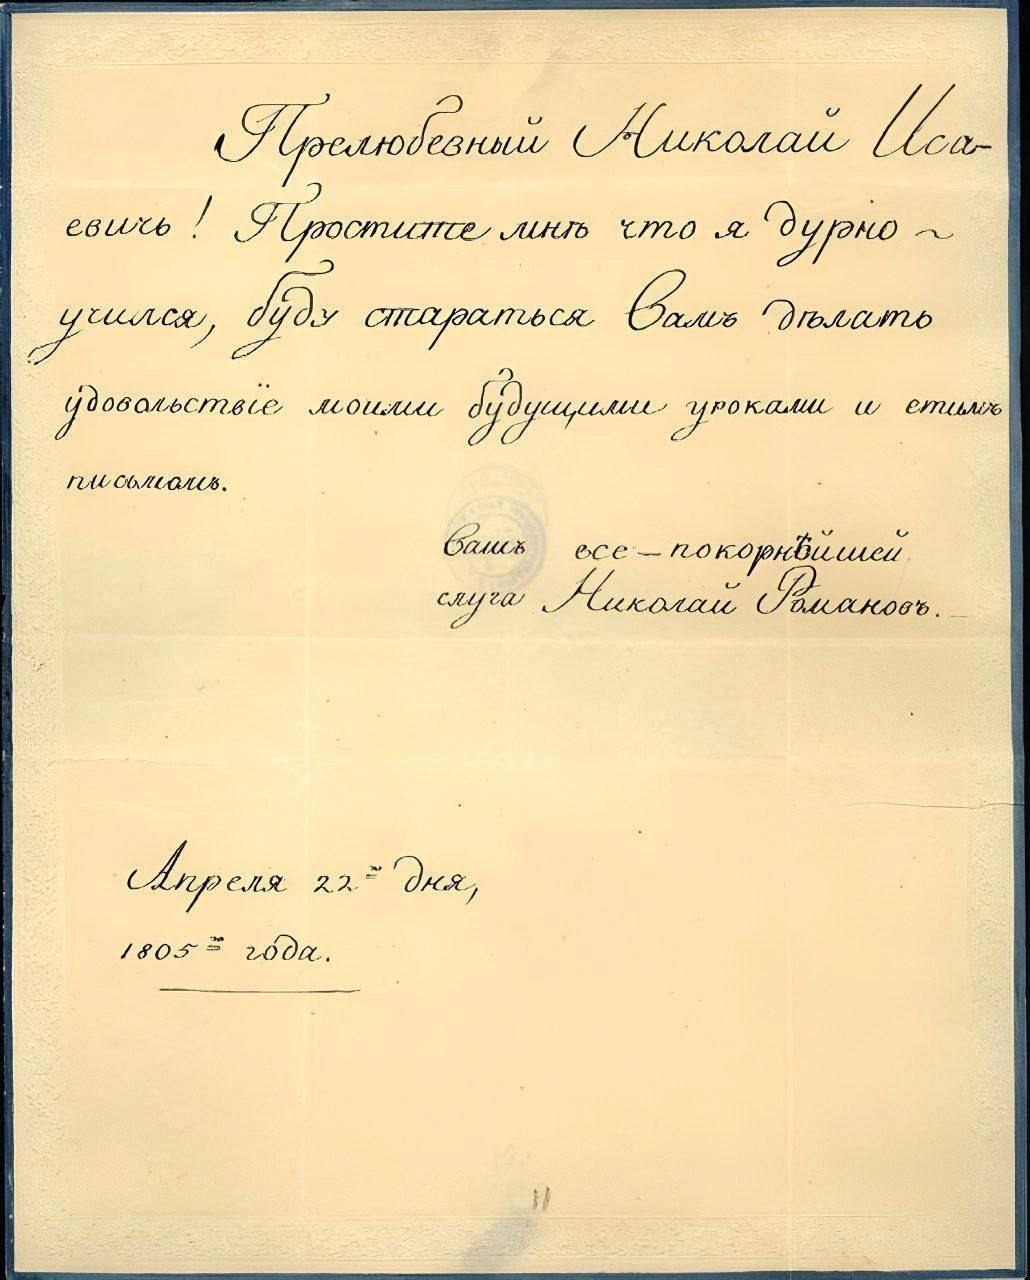 Прелюбезный Николай Иса-
евичь! Простите мнѣ что я дурно ~
учился, буду стараться Вамъ дѣлать
удовольствіе моими будущими уроками и етимъ
письмомъ.
Вашъ все-покорнѣйшей
слуга Николай Романовъ.
Апреля 22го дня,
1805го года.